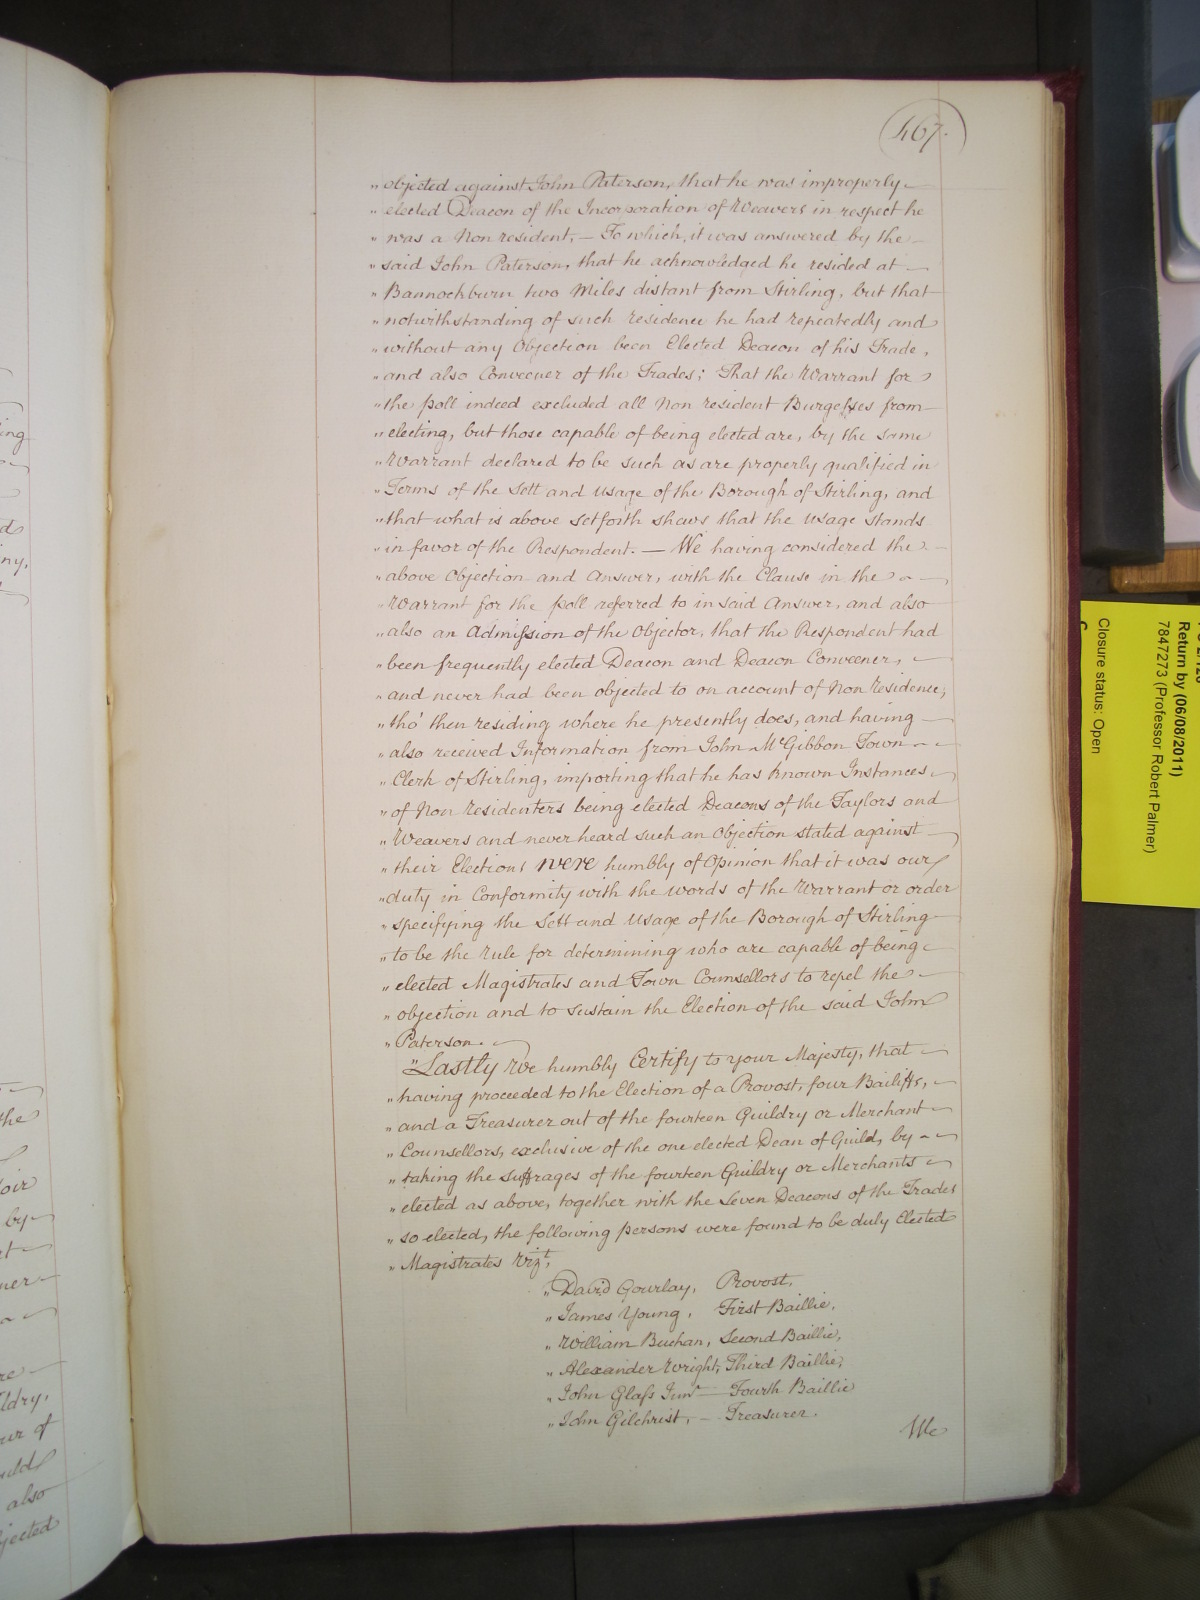 467.
„ objected against John Paterson, that he was improperly
„ elected Deacon of the Incorporation of Weavers in respect he
„ was a Non resident, — To which, it was answered by the
„ said John Paterson, that he acknowledged he resided at
„ Bannockburn two Miles distant from Stirling, but that
„ notwithstanding of such residence he had repeatedly and
„ without any Objection been Elected Deacon of his Trade,
„ and also Conveener of the Trades; That the Warrant for
„ the poll indeed excluded all Non resident Burgesses from
„ electing, but those capable of being elected are, by the same
„ Warrant declared to be such as are properly qualified in
„ Terms of the Sett and Usage of the Borough of Stirling, and
„ that what is above setforth shews that the Usage stands
„ in favor of the Respondent. — We having considered the
„ above Objection and Answer, with the Clause in the
„ Warrant for the poll referred to in said Answer, and also
„ also an Admission of the Objector, that the Respondent had
„ been frequently elected Deacon and Deacon Conveener,
„ and never had been objected to on account of Non Residence,
„ tho' then residing where he presently does, and having
„ also received Information from John McGibbon Town
„ Clerk of Stirling, importing that he has known Instances
„ of Non Residenters being elected Deacons of the Taylors and
„ Weavers and never heard such an Objection stated against
„ their Elections were humbly of Opinion that it was our
„ duty in Conformity with the words of the Warrant or order
„ specifying the Sett and Usage of the Borough of Stirling
„ to be the rule for determining who are capable of being
„ elected Magistrates and Town Counsellors to repel the
„ objection and to sustain the Election of the said John
„ Paterson.
„ Lastly We humbly Certify to your Majesty, that
„ having proceeded to the Election of a Provost, four Bailiffs,
„ and a Treasurer out of the fourteen Guildry or Merchant
„ Counsellors, exclusive of the one elected Dean of Guild, by
„ taking the suffrages of the fourteen Guildry or Merchants
„ elected as above, together with the Seven Deacons of the Trades
„ so elected, the following persons were found to be duly Elected
„ Magistrates Vizt,
„ David Gourlay, Provost,
„ James Young, First Baillie,
„ William Buchan, Second Baillie,
„ Alexander Wright, Third Baillie,
„ John Glass Junr — Fourth Baillie
„ John Gilchrist, — Treasurer.
We
Return by (06/08/2011)
7847273 (Professor Robert Palmer)
Closure status: Open
ing
ny,
the
by
Idry,
also